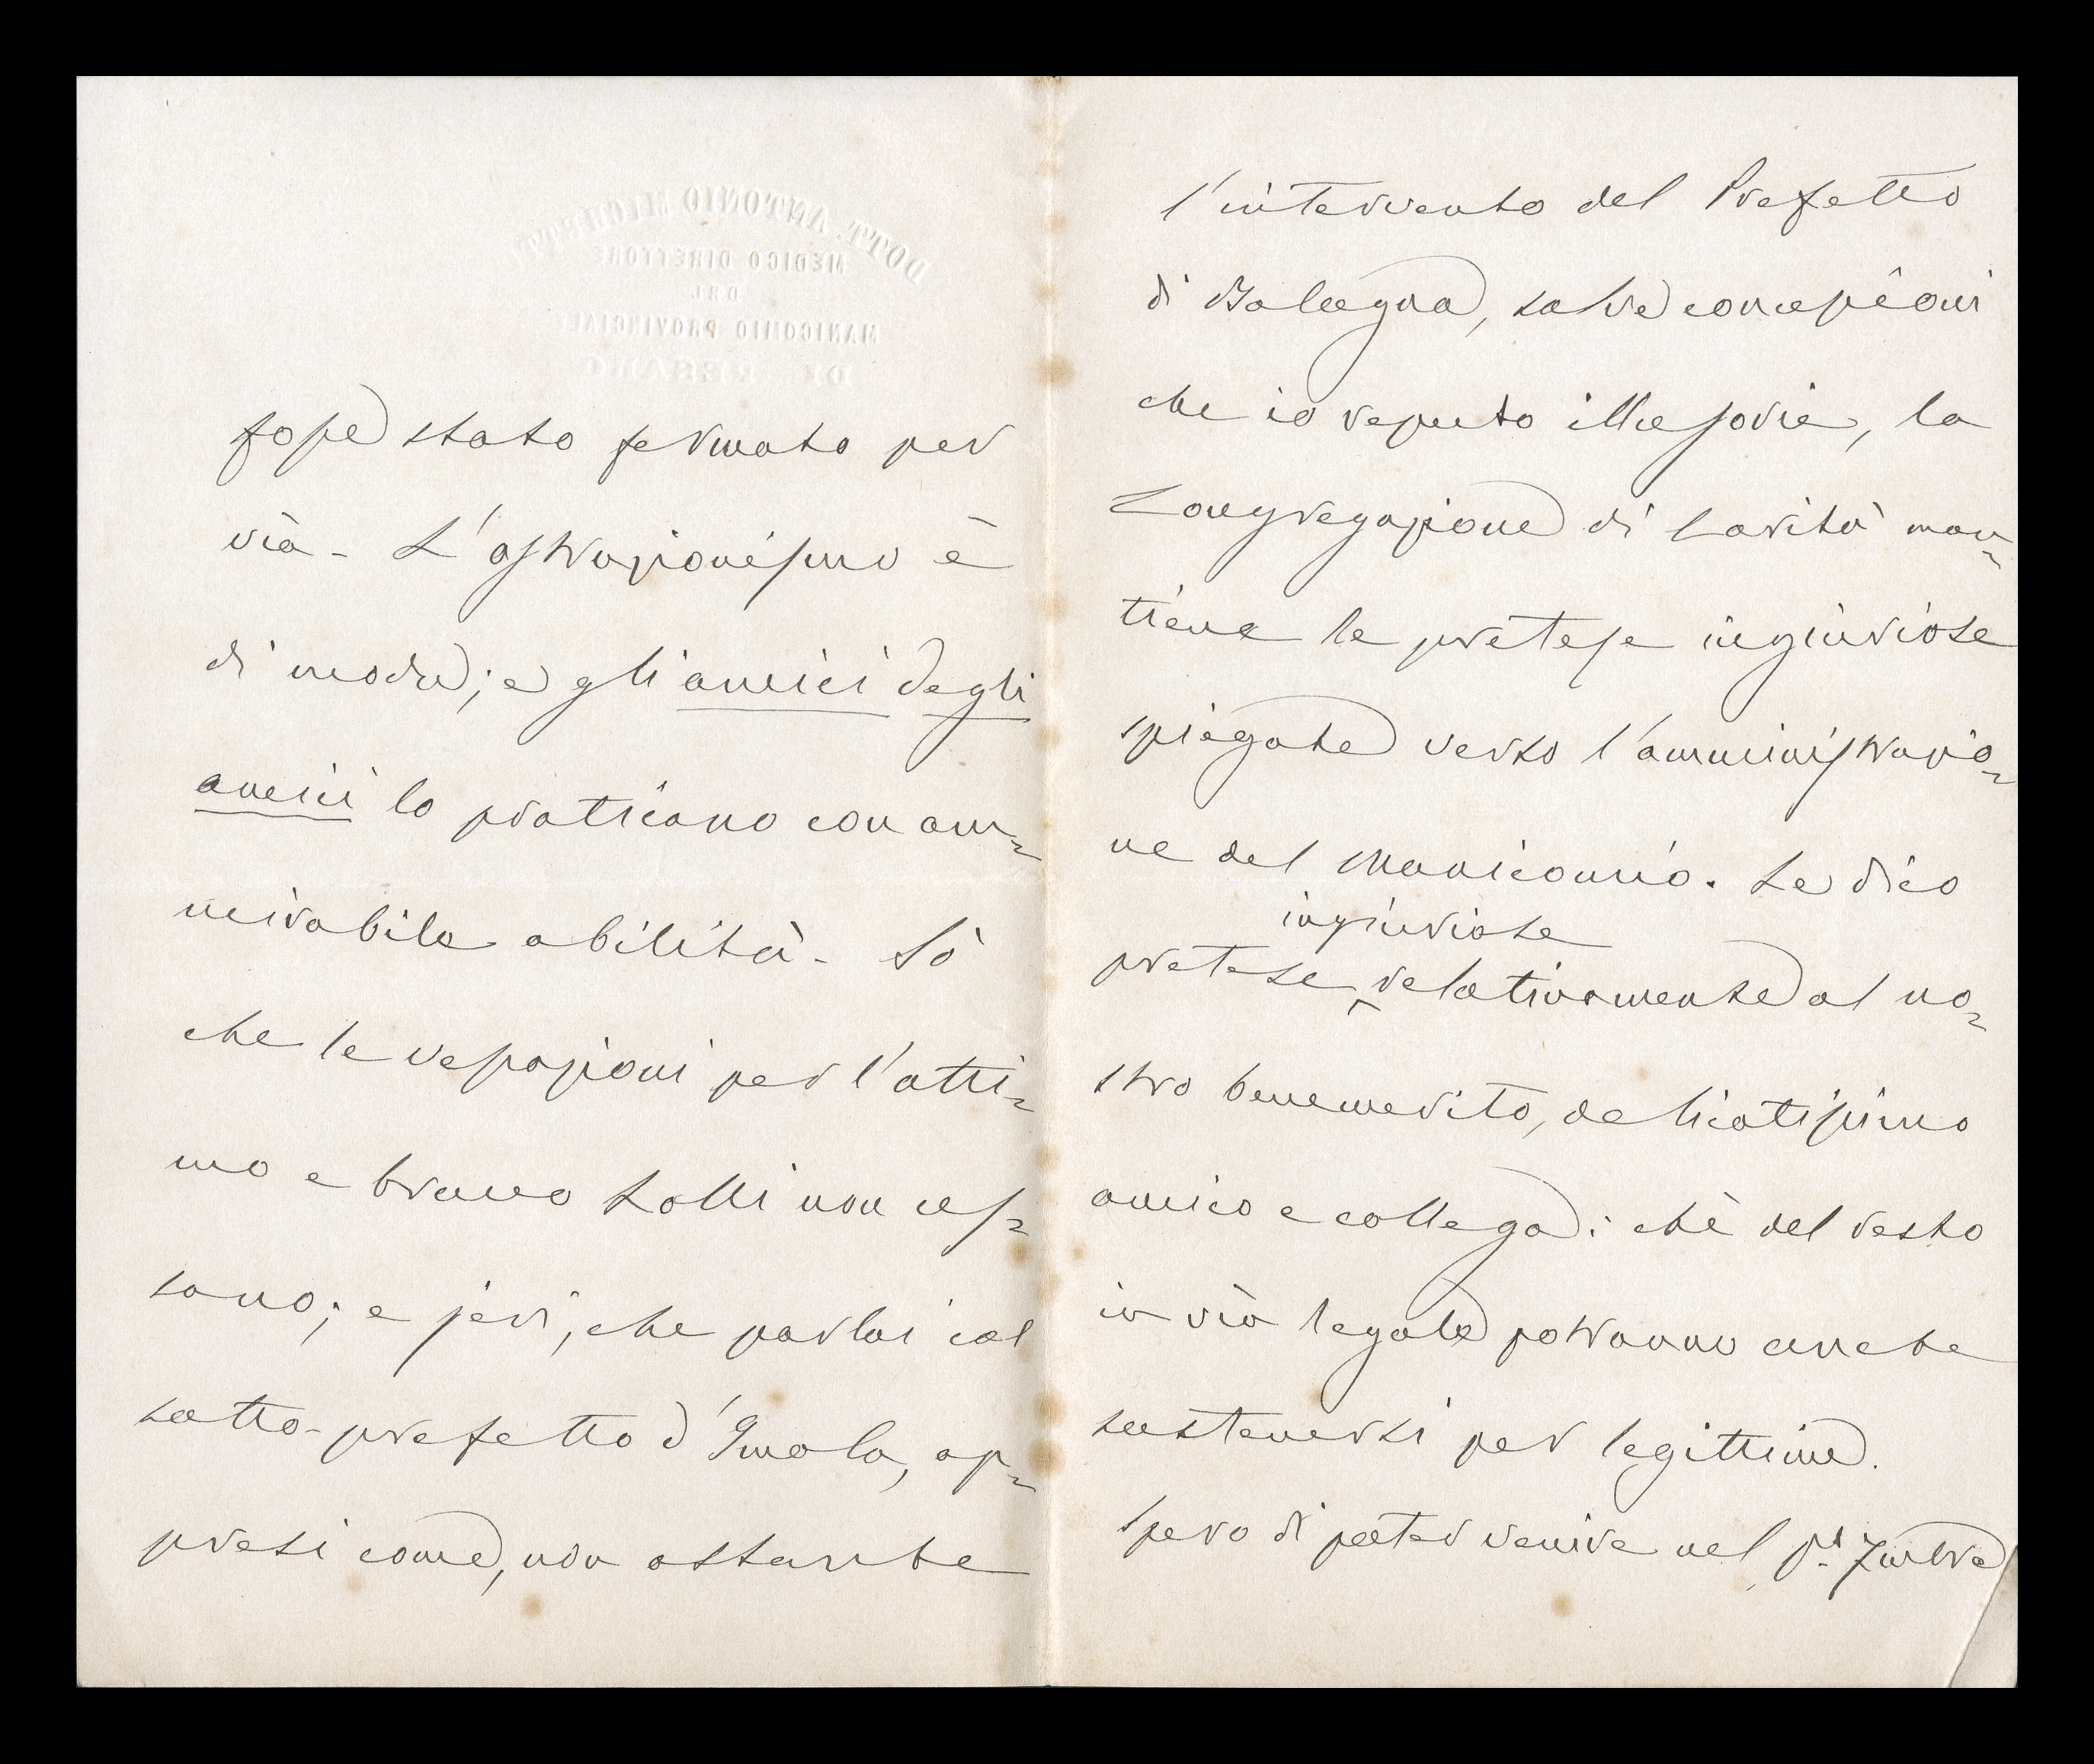 DOTT. ANTONIO MICHETTI
MEDICO DIRETTORE
DEL
MANICOMIO PROVINCIALE
DI PESARO
fosse stato fermato per
via - L'ostruzionismo è
di moda; e gli amici degli
amici lo praticano con am=
mirabile abilità - Sò
che le vessazioni per l'otti=
mo e bravo Lolli non ces=
sano; e jeri, che parlai col
sotto-prefetto d'Imola, ap=
presi come, non ostante
l'intervento del Prefetto
di Bologna, salve concessioni
che io reputo illusorie, la
Congregazione di Carità man=
tiene le pretese ingiuriose
spiegate verso l'amministrazio=
ne del Manicomio. Le dico
ingiuriose
pretese relativamente al no=
stro benemerito, delicatissimo
amico e collega: chè del resto
in via legale potranno anche
sostenersi per legittime.
Spero di poter venire nel pº. 7mbre